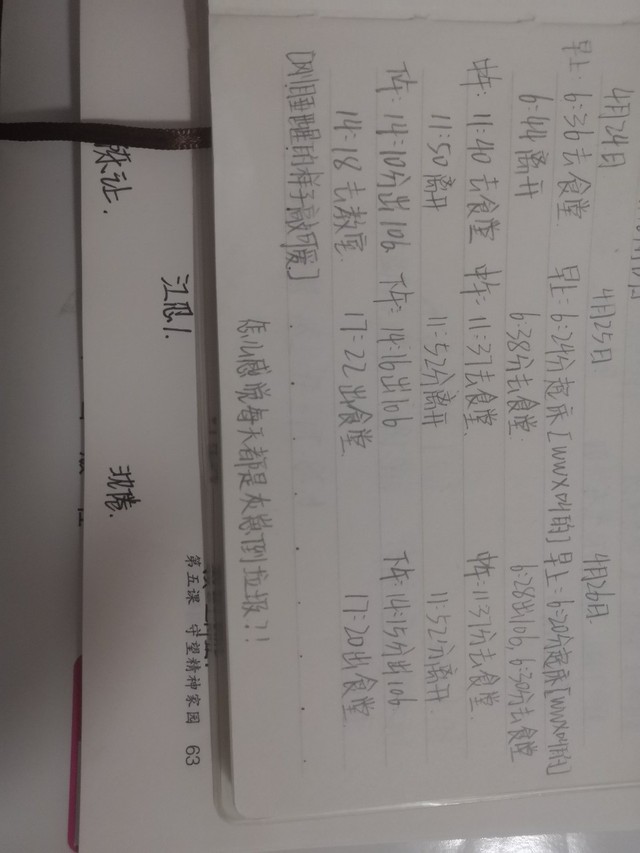 4月24日
早上: 6:36去食堂
6:44离开
中午: 11:40去食堂
11:50离开
下午: 14:10分出106
14:18去教室
[刚睡醒的样子真可爱]
4月25日
早上: 6:24分起床[wwx叫的]
6:38分去食堂
中午: 11:37去食堂
11:52分离开
下午: 14:16出106
17:22出食堂
4月26日
早上: 6:20分起床[wwx叫的]
6:28出106, 6:30分去食堂
中午: 11:37分去食堂
11:52分离开
下午: 14:15分出106
17:20出食堂
怎么感觉每天都是在倒垃圾?!
让.
第五课 守望精神家园 63